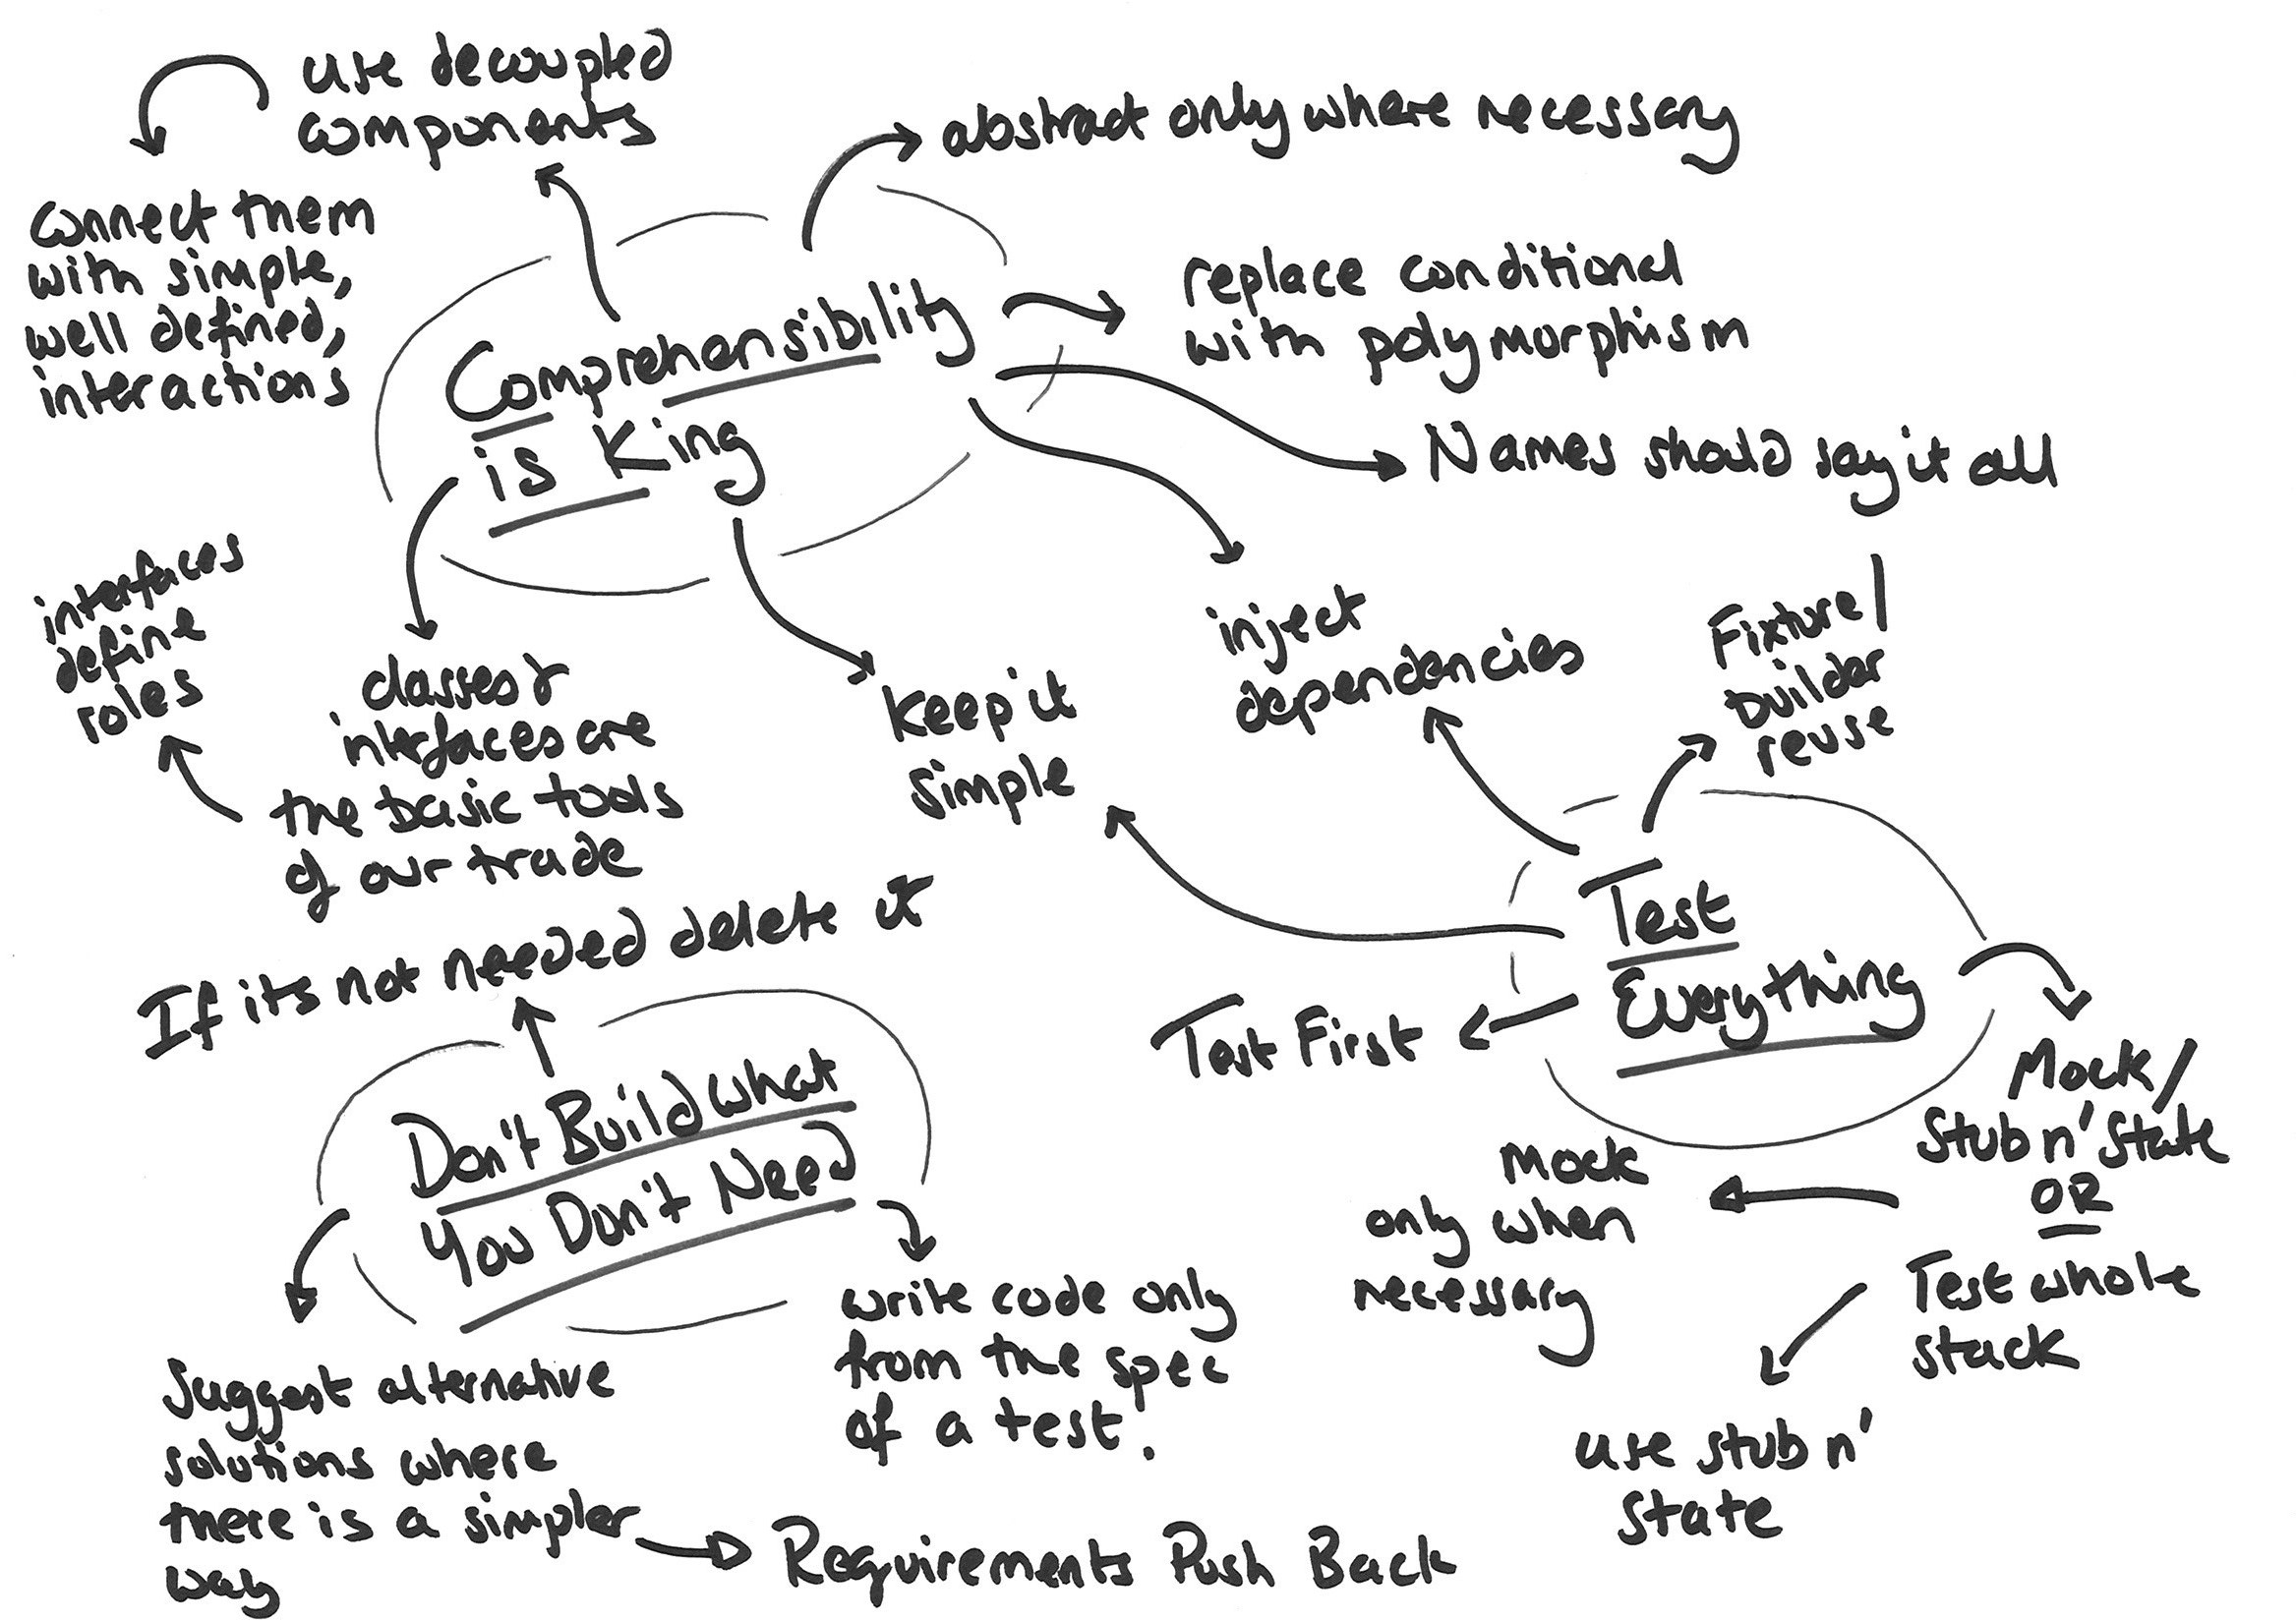 use decoupled
components
connect them
with simple,
well defined,
interactions
abstract only where necessary
replace conditional
with polymorphism
Names should say it all
Comprehensibility
is King
inject
dependencies
keep it
simple
classes &
interfaces are
the basic tools
of our trade
interfaces
define
roles
Fixture/
builder
reuse
Test
Everything
Test First
Mock/
Stub n' State
OR
Test whole
stack
Mock
only when
necessary
use stub n'
state
If its not needed delete it
Don't Build what
You Don't Need
write code only
from the spec
of a test!
Suggest alternative
solutions where
there is a simpler
way
Requirements Push Back